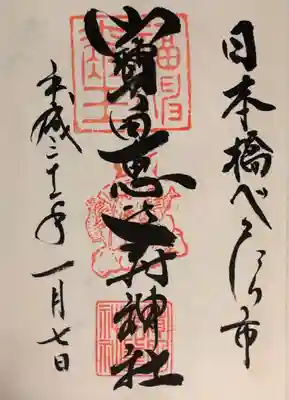 日本橋べったら市
寳田恵比寿神社
平成 年 一月七日